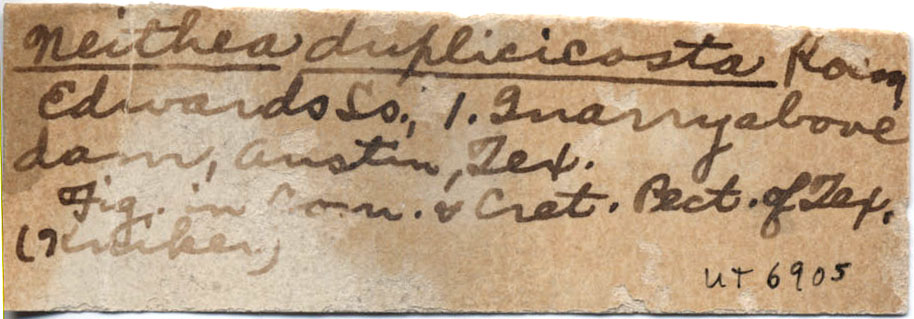 Neithea duplicicosta Roem
Edwards Ls., 1. Quarry above
dam, Austin, Tex.
Fig. in Com. & Cret. Pect. of Tex.
(Kniker)
UT 6905